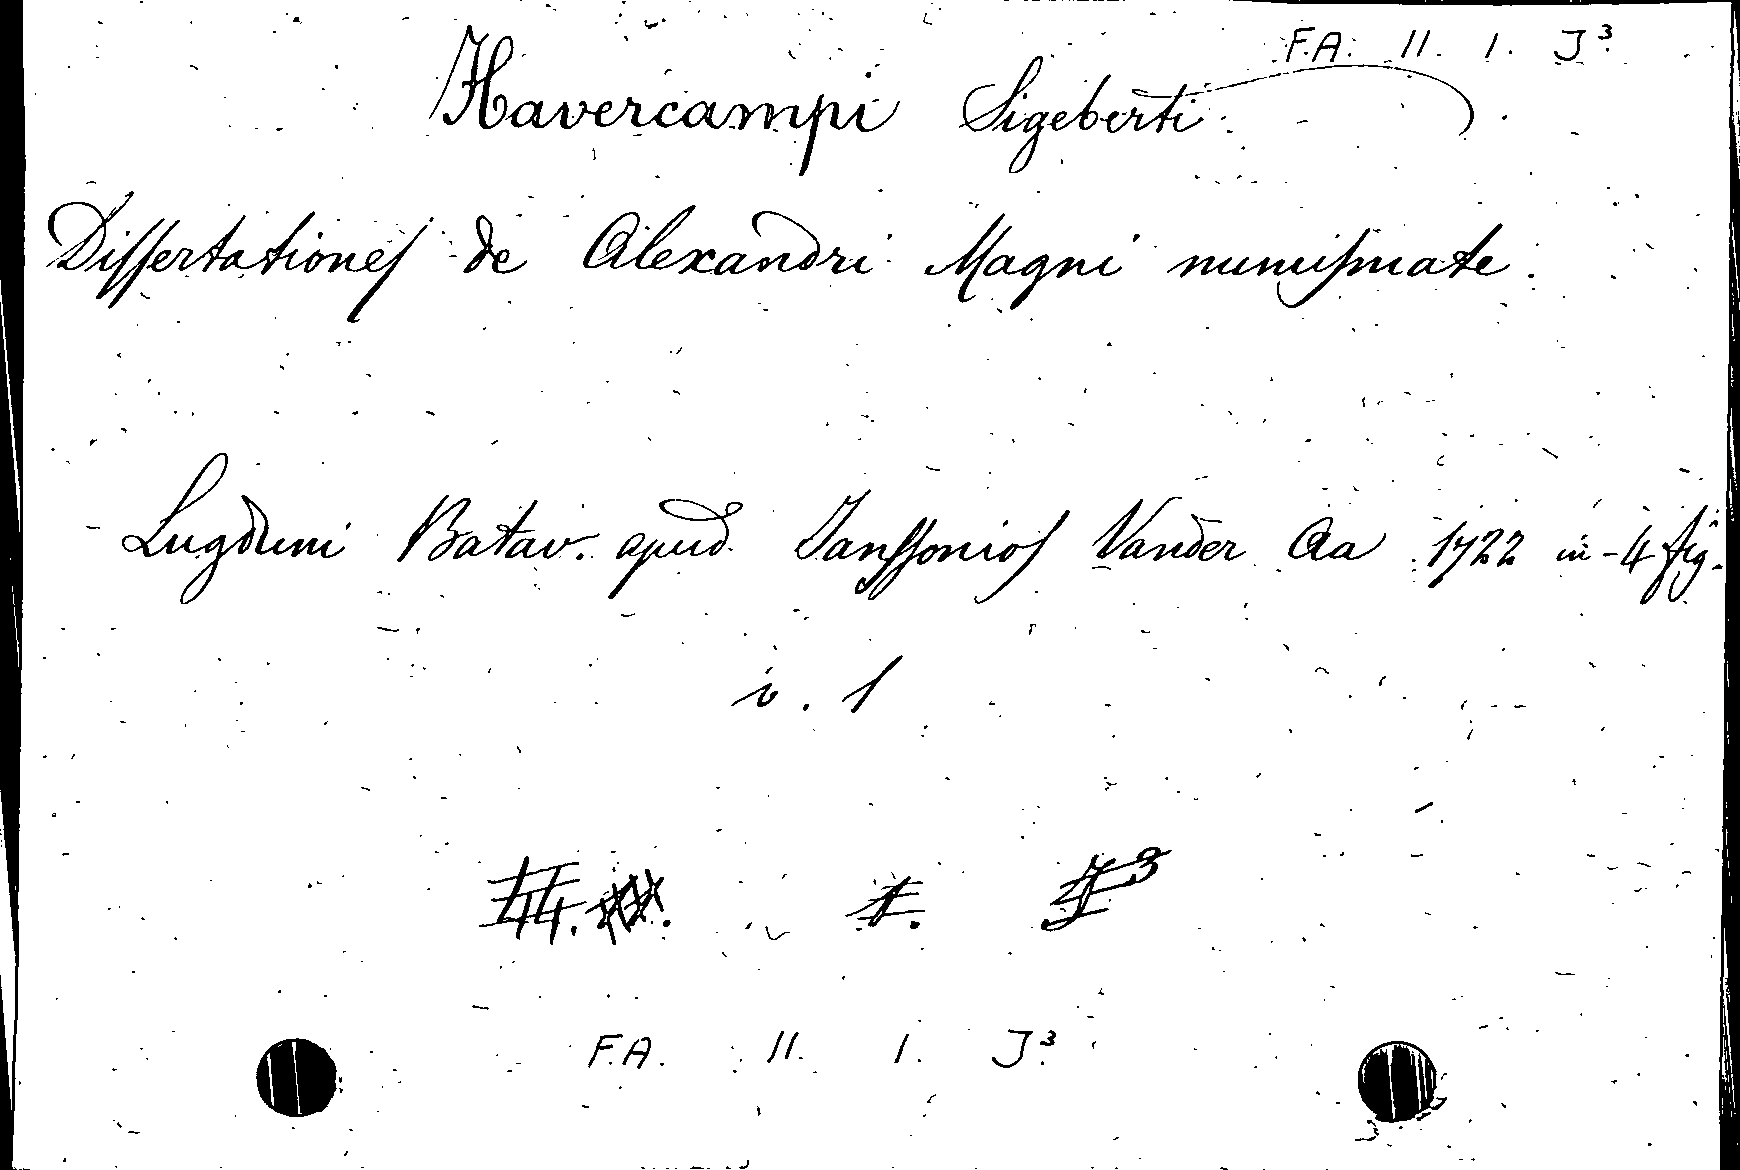 F.A. II. 1. J³.
Havercampi Sigeberti
Dissertationes de Alexandri Magni numismate.
Lugduni Batav. apud Janssonios Vander Aa 1722 in-4 fig.
v. 1
F.A. II. 1. J³.